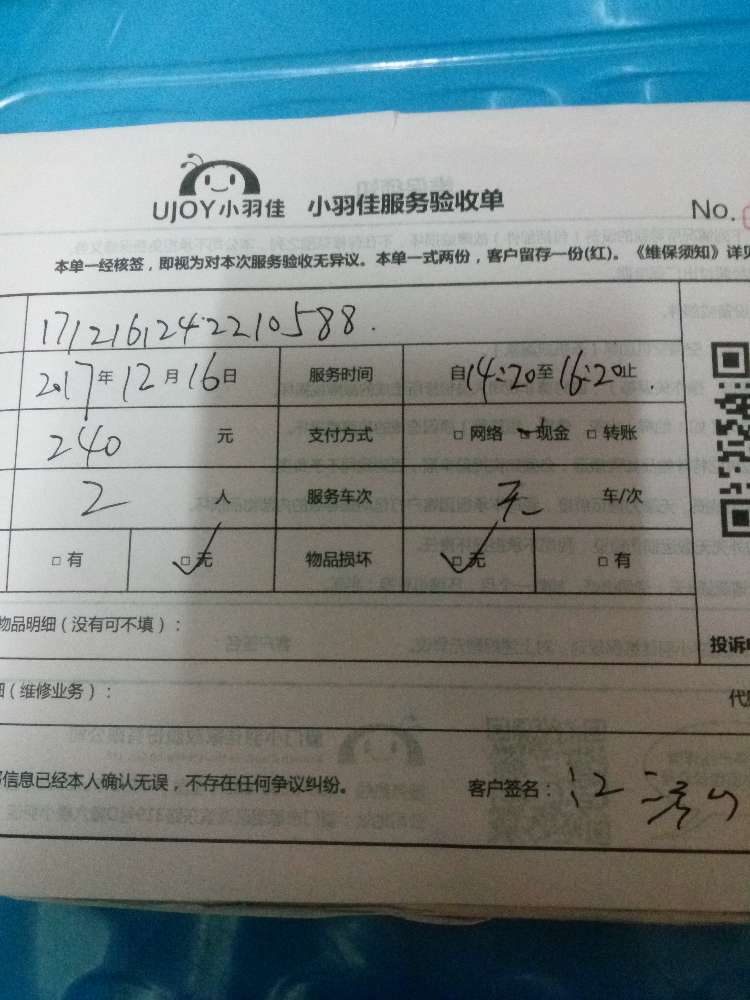 UJOY小羽佳 小羽佳服务验收单
No.
本单一经核签，即视为对本次服务验收无异议。本单一式两份，客户留存一份(红)。《维保须知》详见
1712161242210588.
2017年12月16日 服务时间 自14:20至16:20止
240 元 支付方式 □网络 □现金 □转账
2 人 服务车次 无 车/次
□有 □无 物品损坏 □无 □有
物品明细（没有可不填）：
投诉电
（维修业务）：
信息已经本人确认无误，不存在任何争议纠纷。 客户签名：江